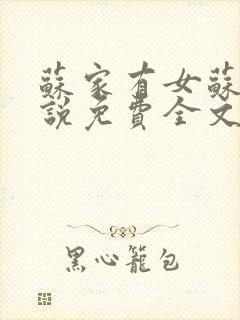 蘇家有女蘇
說免費全文
黑心籠包